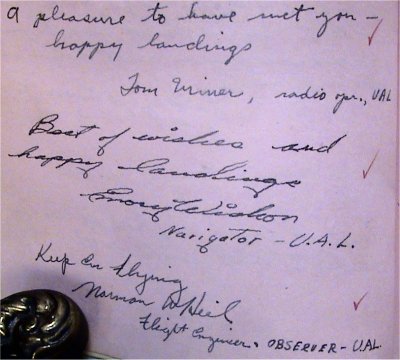 a pleasure to have met you -
happy landings
Tom Miner, radio opr., UAL
Best of wishes and
happy landings
Navigator - U.A.L.
Keep On Flying
Norman
Flight Engineer. OBSERVER - UAL